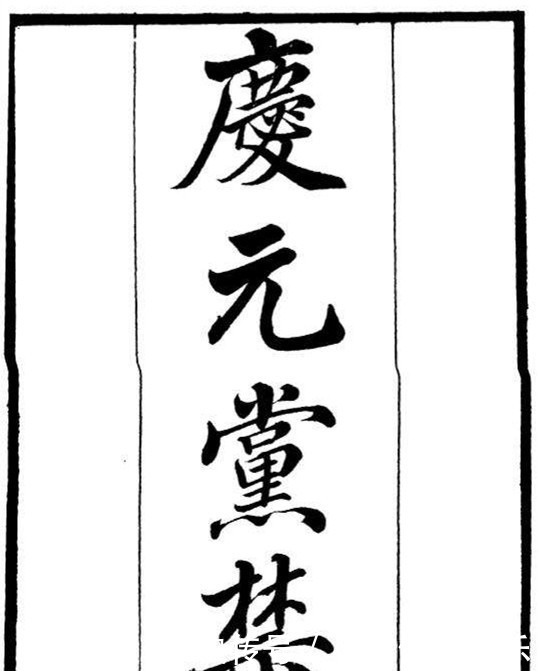 慶元黨禁